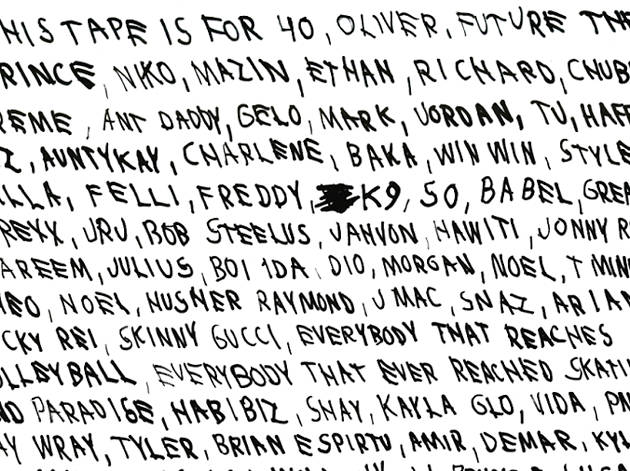 HIS TAPE IS FOR 40, OLIVER, FUTURE THE
RINCE, NIKO, MAZIN, ETHAN, RICHARD, CHUB
REME, ANT DADDY, GELO, MARK, JORDAN, TU, HAFF
Z, AUNTYKAY, CHARLENE, BAKA, WIN WIN, STYLE
ILLA, FELLI, FREDDY, K9, 50, BABEL, GREA
REXX, JRU, BOB STEELUS, JAHVON, HAWITI, JONNY R
AREEM, JULIUS, BOI 1DA, DIO, MORGAN, NOEL, T MIN
HEO, NOEL, HUSHER RAYMOND, J MAC, SNAZ, ARIAN
CKY REI, SKINNY GUCCI, EVERYBODY THAT REACHES
OLLEYBALL, EVERYBODY THAT EVER REACHED SKATI
ND PARADISE, HABIBIZ, SHAY, KAYLA GLO, VIDA, PA
AY WRAY, TYLER, BRIAN ESPIRTU, AMIR, DEMAR, KYL